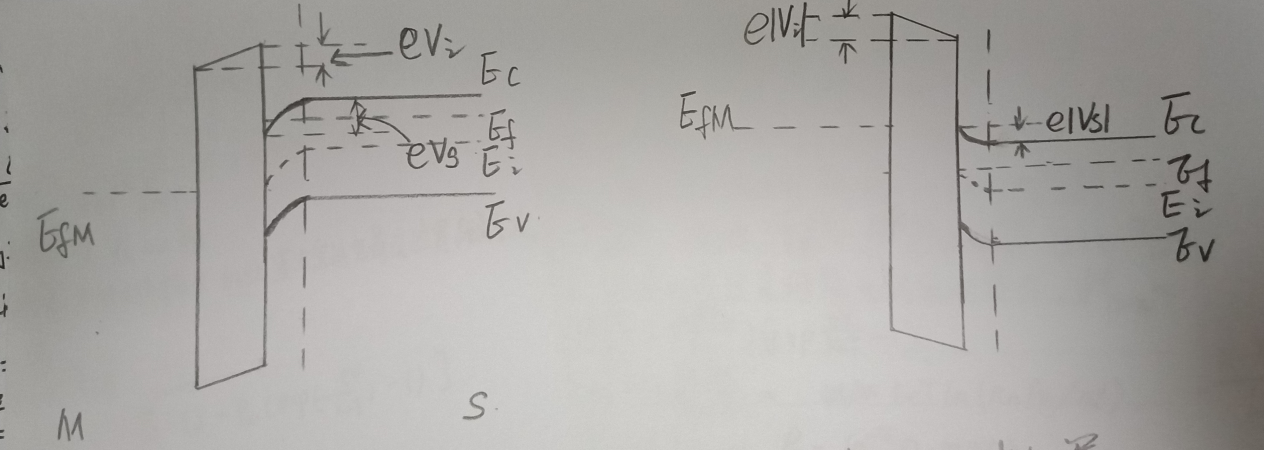 eVi
Ec
Ef
eVs
Ei
EfM
Ev
M
S
e|Vi|
EfM
e|Vs|
Ec
Ef
Ei
Ev